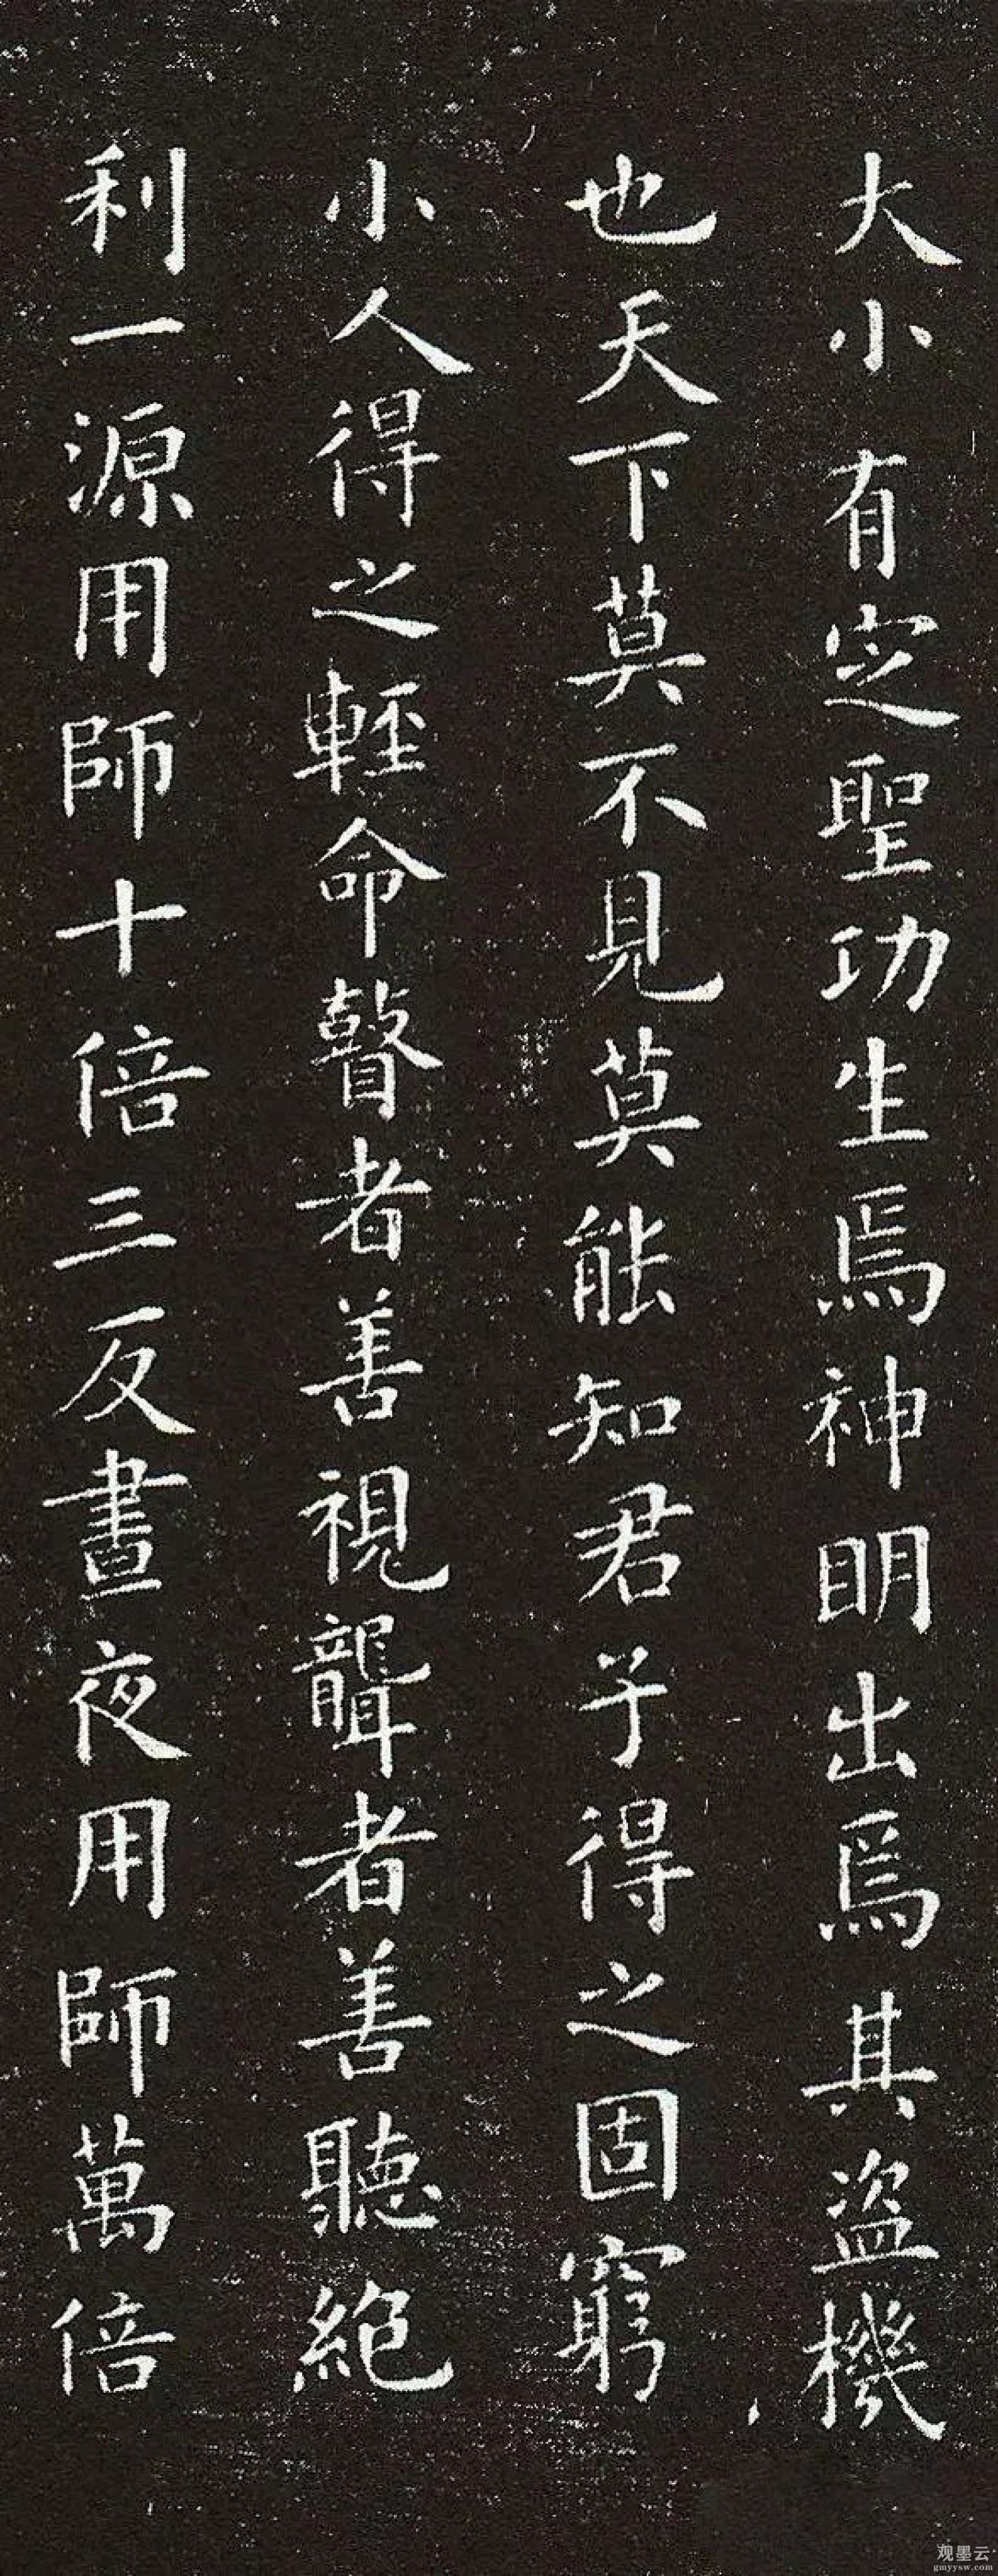 大小有定聖功生焉神明出焉其盜機
也天下莫不見莫能知君子得之固窮
小人得之輕命瞽者善視聾者善聽絕
利一源用師十倍三反晝夜用師萬倍
观墨云
gmyysw.com